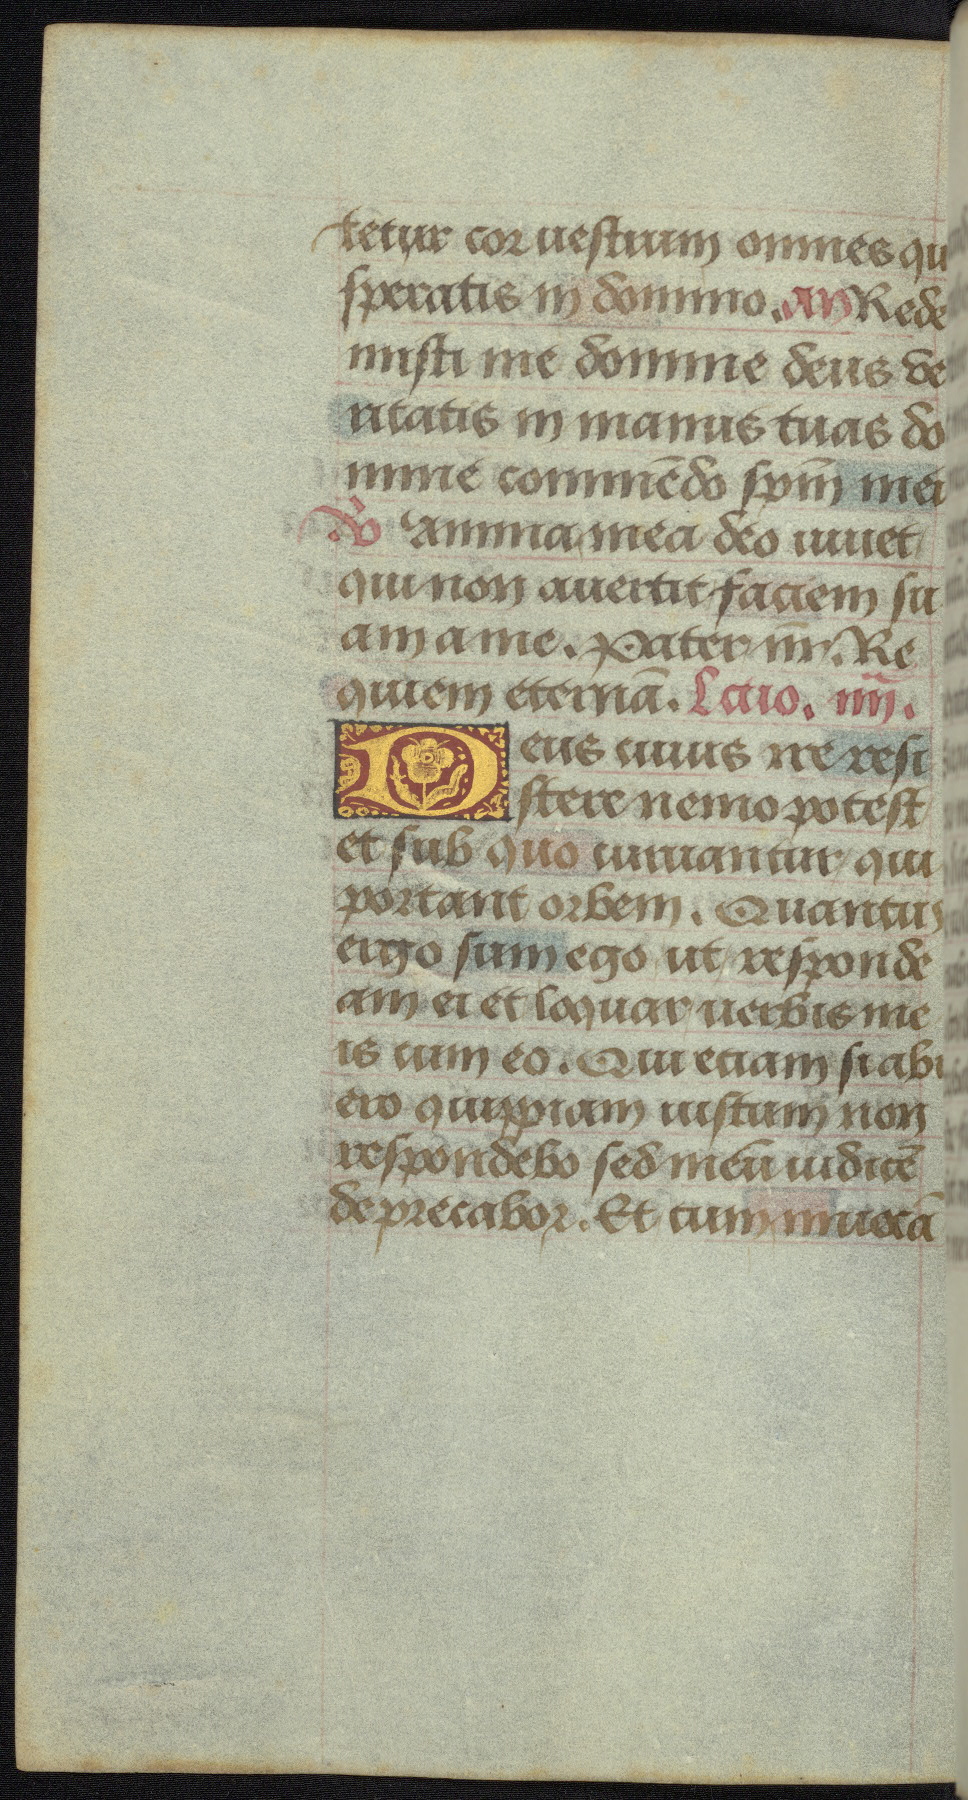 tetur cor uestrum omnes qu
speratis in domino. an Rede
misti me domine deus ve
ritatis in manus tuas do
mine commēdo spm̄ meū
V Anima mea deo uiuet
qui non auertit faciem su
am a me. Pater nr̄. Re
quiem eternā. Lctio. iiii.
Deus cuius ire resi
stere nemo potest
et sub quo curuantur qui
portant orbem. Quantus
ergo sum ego ut responde
am ei et loquar uerbis me
is cum eo. Qui etiam si abu
ero quippiam iustum non
respondebo sed meū iudicē
deprecabor. Et cum inuocā